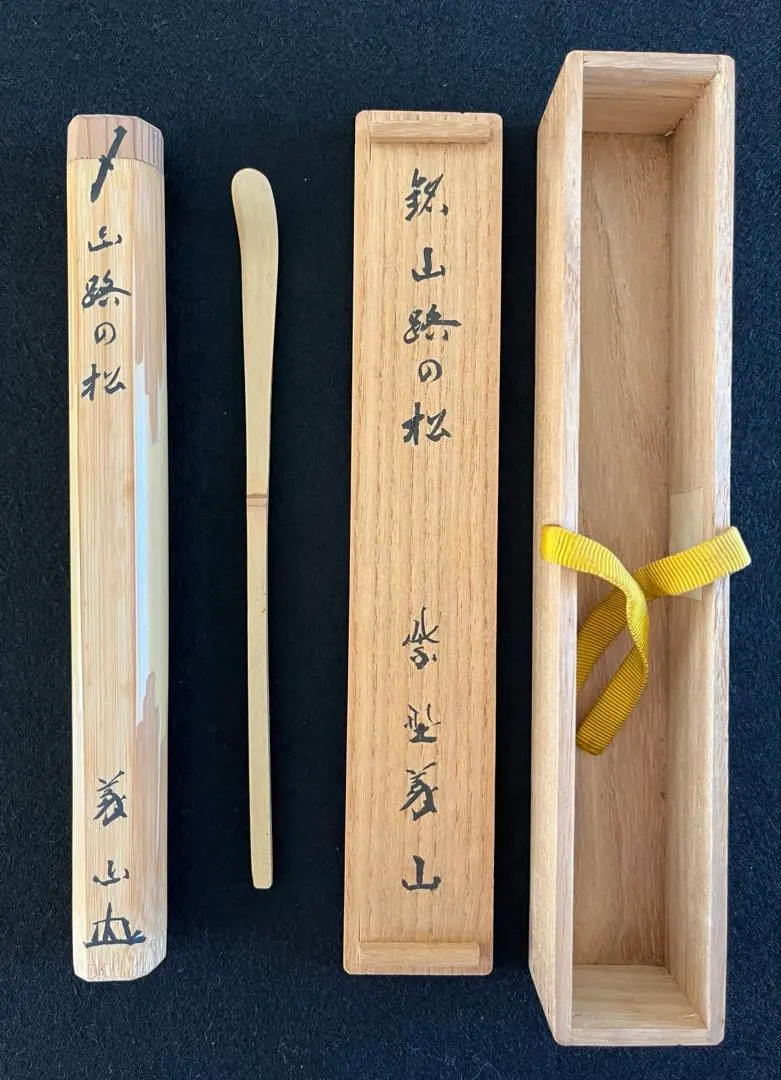 〆
山路の松
義山
銘 山路の松
紫埜義山